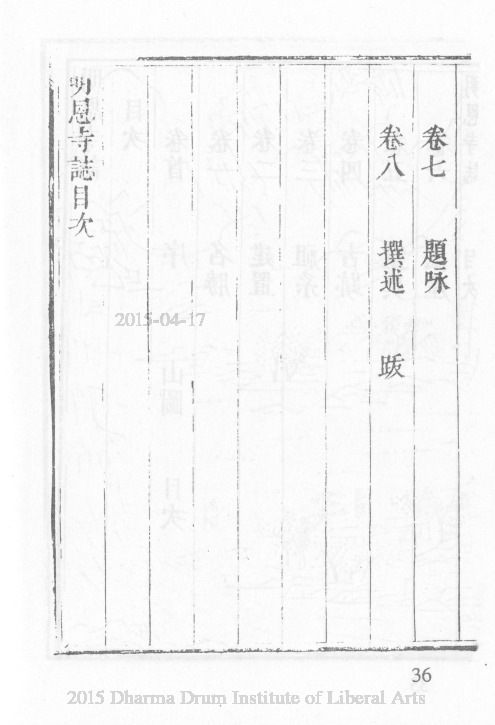 卷七　題咏
卷八　撰述　跋
明恩寺誌目次
2015-04-17
36
2015 Dharma Drum Institute of Liberal Arts